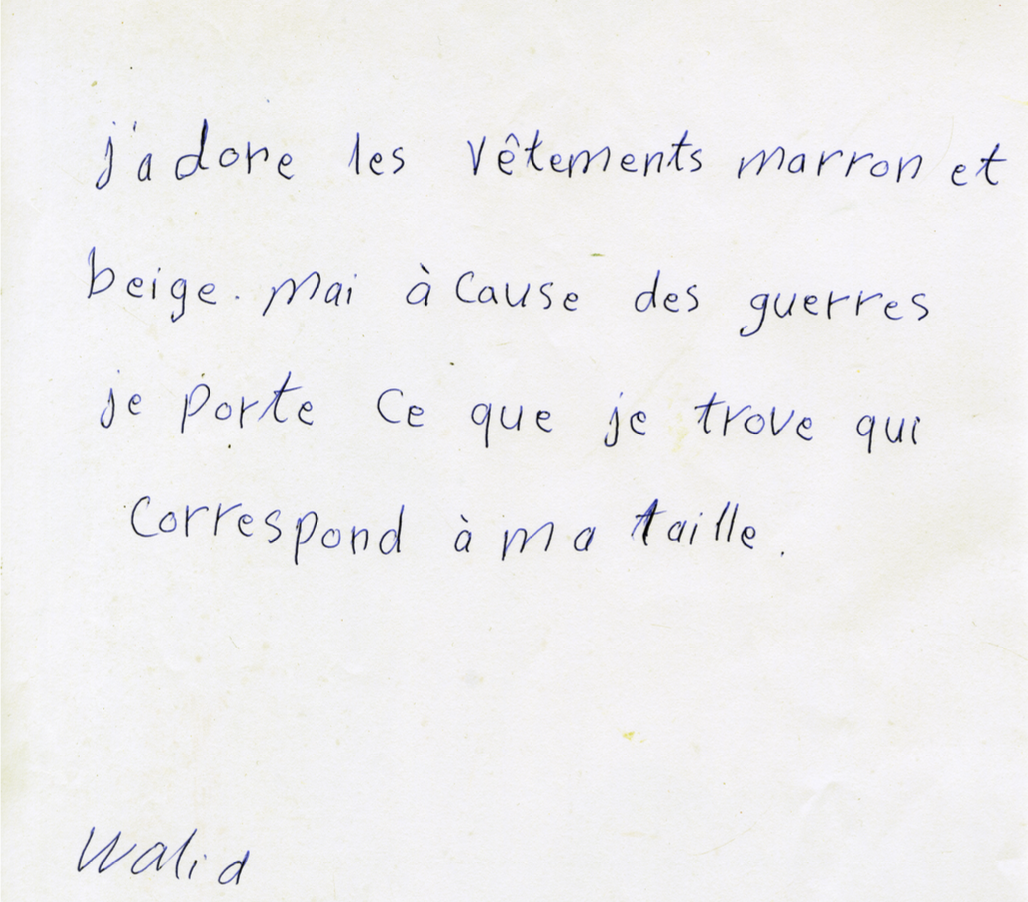 j'adore les vêtements marron et
beige. Mai à Cause des guerres
je Porte Ce que je trove qui
Correspond à ma taille.
Walid